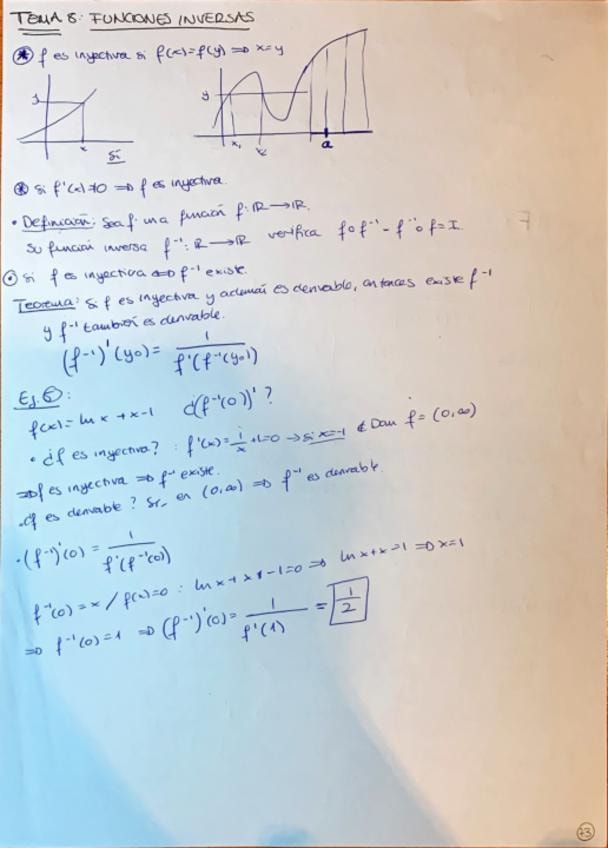 TEMA 8: FUNCIONES INVERSAS
* f es inyectiva si f(x)=f(y) ⇒ x=y
y
x
Sí
y
x₁
x₂
a
* Si f'(x)≠0 ⇒ f es inyectiva.
• Definición: Sea f una función f: ℝ → ℝ.
Su función inversa f⁻¹: ℝ → ℝ verifica f∘f⁻¹ - f⁻¹∘f = I.
• Si f es inyectiva ⇔ f⁻¹ existe.
Teorema: Si f es inyectiva y además es derivable, entonces existe f⁻¹
y f⁻¹ también es derivable.
(f⁻¹)'(y₀) = 1 / f'(f⁻¹(y₀))
Ej.:
f(x)= ln x + x - 1 ¿(f⁻¹(0))'?
• ¿f es inyectiva? : f'(x) = 1/x + 1 = 0 → si x=-1 ∉ Dom f = (0,∞)
⇒ f es inyectiva ⇒ f⁻¹ existe.
• ¿f es derivable? Sí, en (0,∞) ⇒ f⁻¹ es derivable.
• (f⁻¹)'(0) = 1 / f'(f⁻¹(0))
f⁻¹(0) = x / f(x)=0 : ln x + x - 1 = 0 ⇒ ln x + x = 1 ⇒ x=1
⇒ f⁻¹(0) = 1 ⇒ (f⁻¹)'(0) = 1 / f'(1) = 1/2
73